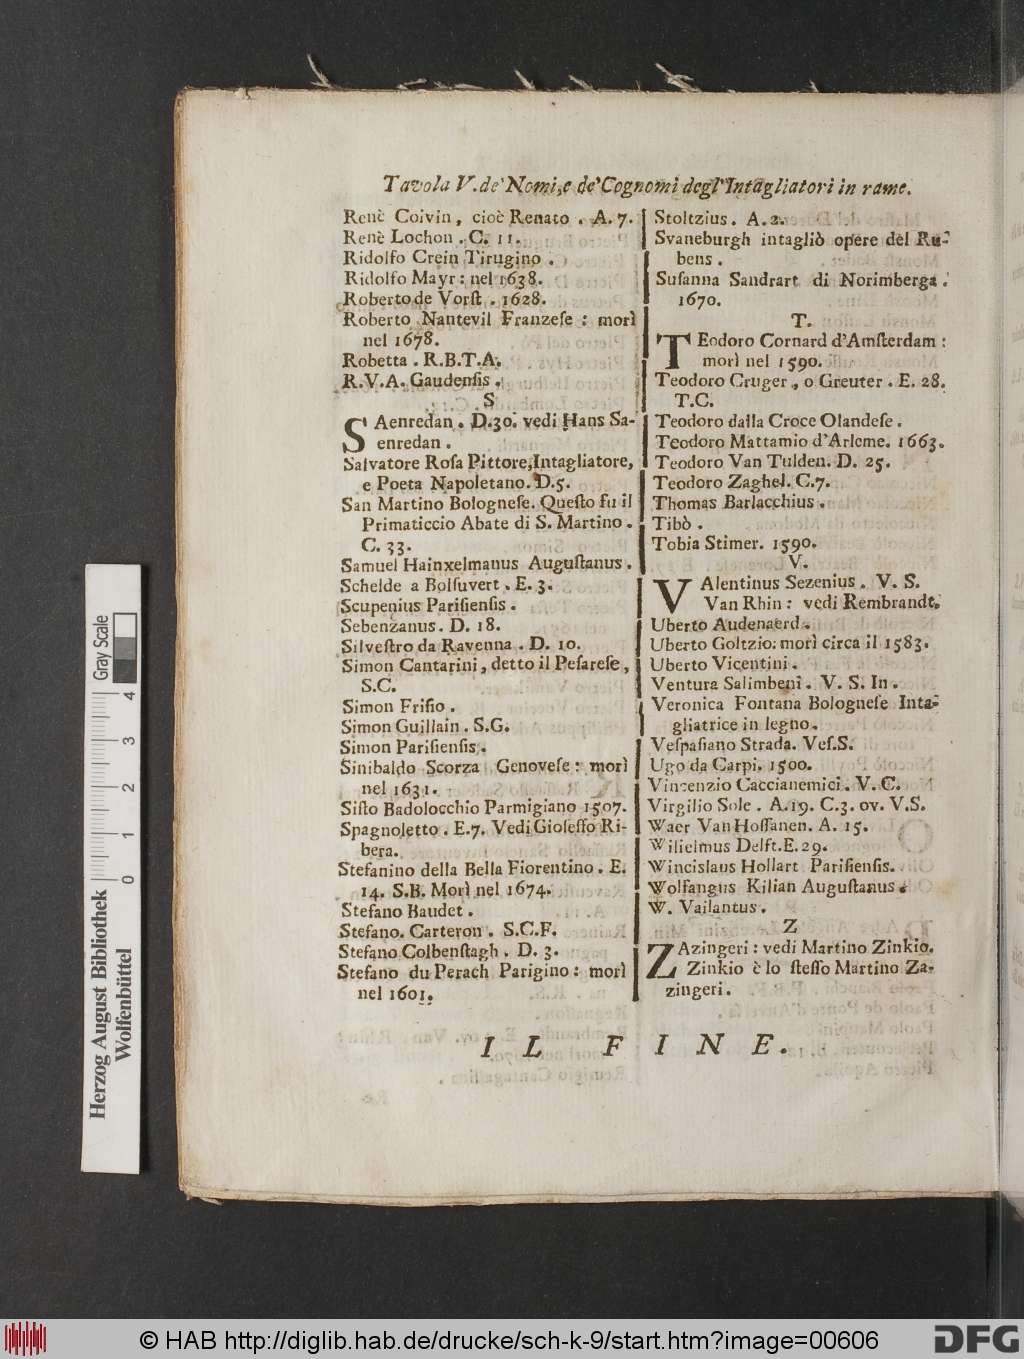 Tavola V. de' Nomi, e de' Cognomi degl' Intagliatori in rame.
Renè Coivin, cioè Renato . A. 7.
Renè Lochon . C. 11.
Ridolfo Crein Tirugino .
Ridolfo Mayr : nel 1638.
Roberto de Vorſt . 1628.
Roberto Nantevil Franzeſe : morì
nel 1678.
Robetta . R.B.T.A.
R.V.A. Gaudenſis .
S
SAenredan . D.30. vedi Hans Sa-
enredan .
Salvatore Roſa Pittore, Intagliatore,
e Poeta Napoletano. D.5.
San Martino Bologneſe. Queſto fu il
Primaticcio Abate di S. Martino .
C. 33.
Samuel Hainxelmanus Auguſtanus .
Schelde a Bolſuvert . E. 3.
Scupenius Pariſienſis .
Sebenzanus. D. 18.
Silveſtro da Ravenna . D. 10.
Simon Cantarini, detto il Peſareſe,
S.C.
Simon Friſio .
Simon Guillain . S.G.
Simon Pariſienſis .
Sinibaldo Scorza Genoveſe : morì
nel 1631.
Siſto Badolocchio Parmigiano 1507.
Spagnoletto . E.7. Vedi Gioſeffo Ri-
bera.
Stefanino della Bella Fiorentino . E.
14. S.B. Morì nel 1674.
Stefano Baudet .
Stefano. Carteron . S.C.F.
Stefano Colbenſtagh . D. 3.
Stefano du Perach Parigino : morì
nel 1601.
Stoltzius. A. 2.
Svaneburgh intagliò opere del Ru-
bens .
Suſanna Sandrart di Norimberga .
1670.
T.
TEodoro Cornard d'Amſterdam :
morì nel 1590.
Teodoro Cruger, o Greuter . E. 28.
T.C.
Teodoro dalla Croce Olandeſe .
Teodoro Mattamio d'Arleme. 1663.
Teodoro Van Tulden. D. 25.
Teodoro Zaghel. C.7.
Thomas Barlacchius .
Tibò .
Tobia Stimer. 1590.
V.
VAlentinus Sezenius . V. S.
Van Rhin : vedi Rembrandt.
Uberto Audenaerd .
Uberto Goltzio: morì circa il 1583.
Uberto Vicentini .
Ventura Salimbeni . V. S. In .
Veronica Fontana Bologneſe Inta-
gliatrice in legno .
Veſpaſiano Strada. Veſ.S.
Ugo da Carpi. 1500.
Vincenzio Caccianemici . V. C.
Virgilio Sole . A.19. C.3. ov. V.S.
Waer Van Hoſſanen. A. 15.
Wilielmus Delft. E. 29.
Wincislaus Hollart Pariſienſis.
Wolfangus Kilian Auguſtanus .
W. Vailantus .
Z
ZAzingeri : vedi Martino Zinkio.
Zinkio è lo ſteſſo Martino Za-
zingeri .
IL FINE.
Gray Scale
4
3
2
1
0
Herzog August Bibliothek
Wolfenbüttel
© HAB http://diglib.hab.de/drucke/sch-k-9/start.htm?image=00606
DFG